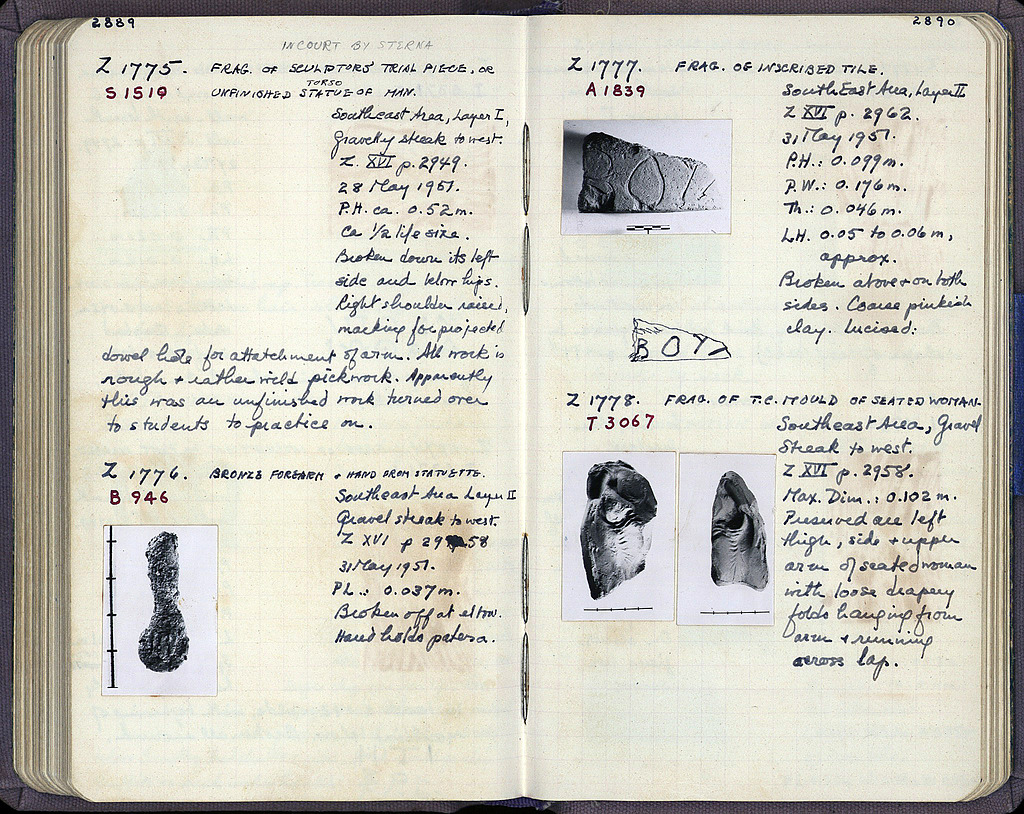 2889
IN COURT BY STERNA
Z 1775. FRAG. OF SCULPTORS' TRIAL PIECE, OR
S 1519 UNFINISHED TORSO STATUE OF MAN.
Southeast Area, Layer I,
Gravelly streak to west.
Z. XVI p. 2949.
28 May 1951.
P.H. ca. 0.52 m.
Ca 1/2 life size.
Broken down its left
side and below hips.
Right shoulder raised,
marking for projected
dowel hole for attatchment of arm. All work is
rough + rather wild pickwork. Apparently
this was an unfinished work turned over
to students to practice on.
Z 1776. BRONZE FOREARM + HAND FROM STATUETTE.
B 946
Southeast Area Layer II
Gravel streak to west.
Z XVI p 2958
31 May 1951.
P.L.: 0.037 m.
Broken off at elbow.
Hand holds patera.
2890
Z 1777. FRAG. OF INSCRIBED TILE.
A 1839
SouthEast Area, Layer II
Z XVI p. 2962.
31 May 1951.
P.H.: 0.099 m.
P.W.: 0.176 m.
Th.: 0.046 m.
L.H. 0.05 to 0.06 m,
approx.
Broken above + on both
sides. Coarse pinkish
clay. Incised:
ΒΟΥΛ
Z 1778. FRAG. OF T.C. MOULD OF SEATED WOMAN.
T 3067
Southeast Area, Gravel
Streak to west.
Z XVI p. 2958.
Max. Dim.: 0.102 m.
Preserved are left
thigh, side + upper
arm of seated woman
with loose drapery
folds hanging from
arm + running
across lap.